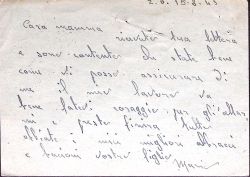 15-8-43
Cara mamma ricevetti tua lettera
e sono contento che state bene
come vi posso assicurare di
me il mio lavoro va
bene fatevi coraggio per gli allar
mi e presto finirà tutto
miei migliori abbracci
e bacioni vostro figlio
Mario